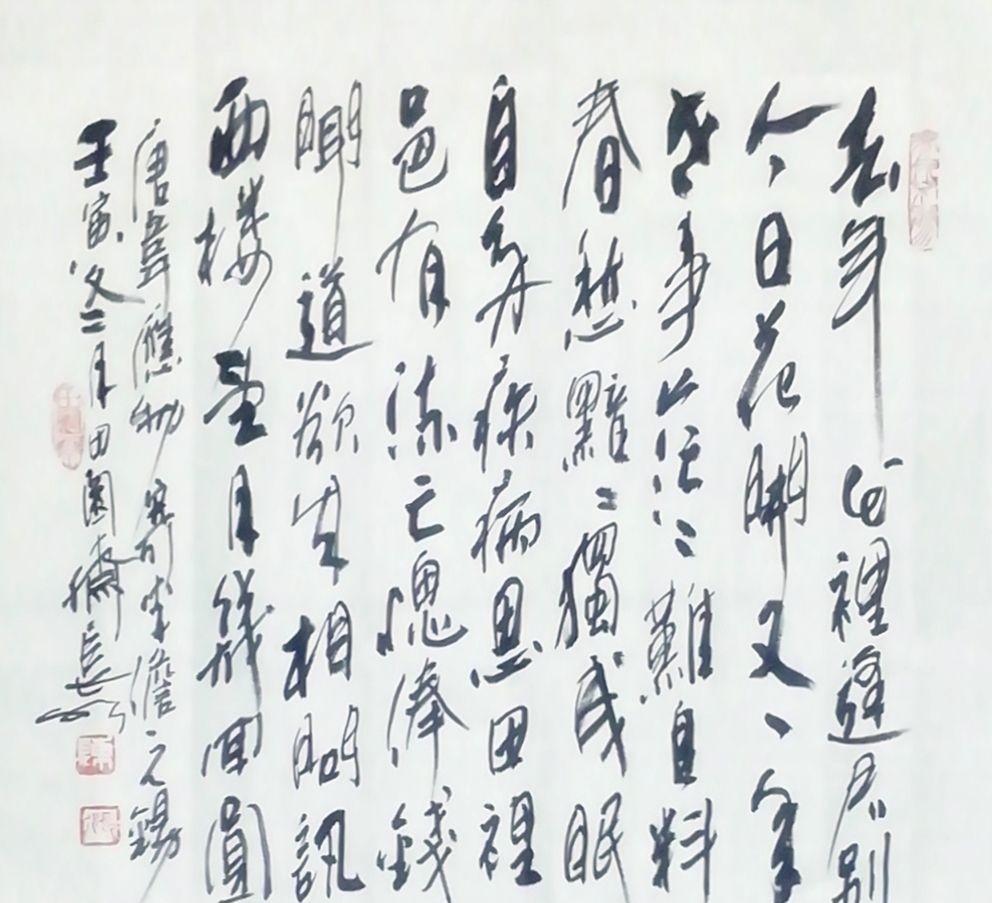 去年花裡逢君别
今日花開又一年
世事茫茫難自料
春愁黯黯獨成眠
身多疾病思田裡
邑有流亡愧俸錢
聞道欲來相問訊
西樓望月幾回圓
唐韋應物寄李儋元錫
壬寅二月田園